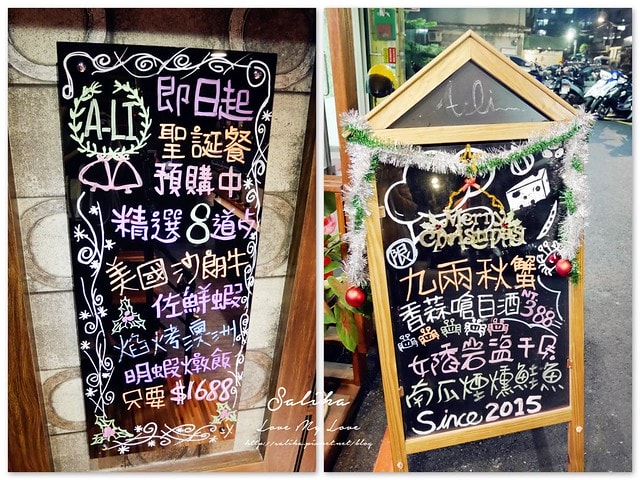 A-LI
即日起
聖誕餐
預購中
精選8道
美國沙朗牛
佐鮮蝦
焰烤澳洲
明蝦燉飯
只要 $1688
Saliha
Love My Love
a-li
Merry
Christmas
限
九兩秋蟹
香蒜嗆白酒 NT 388
好香岩鹽干貝
南瓜煙燻鮭魚
Since 2015